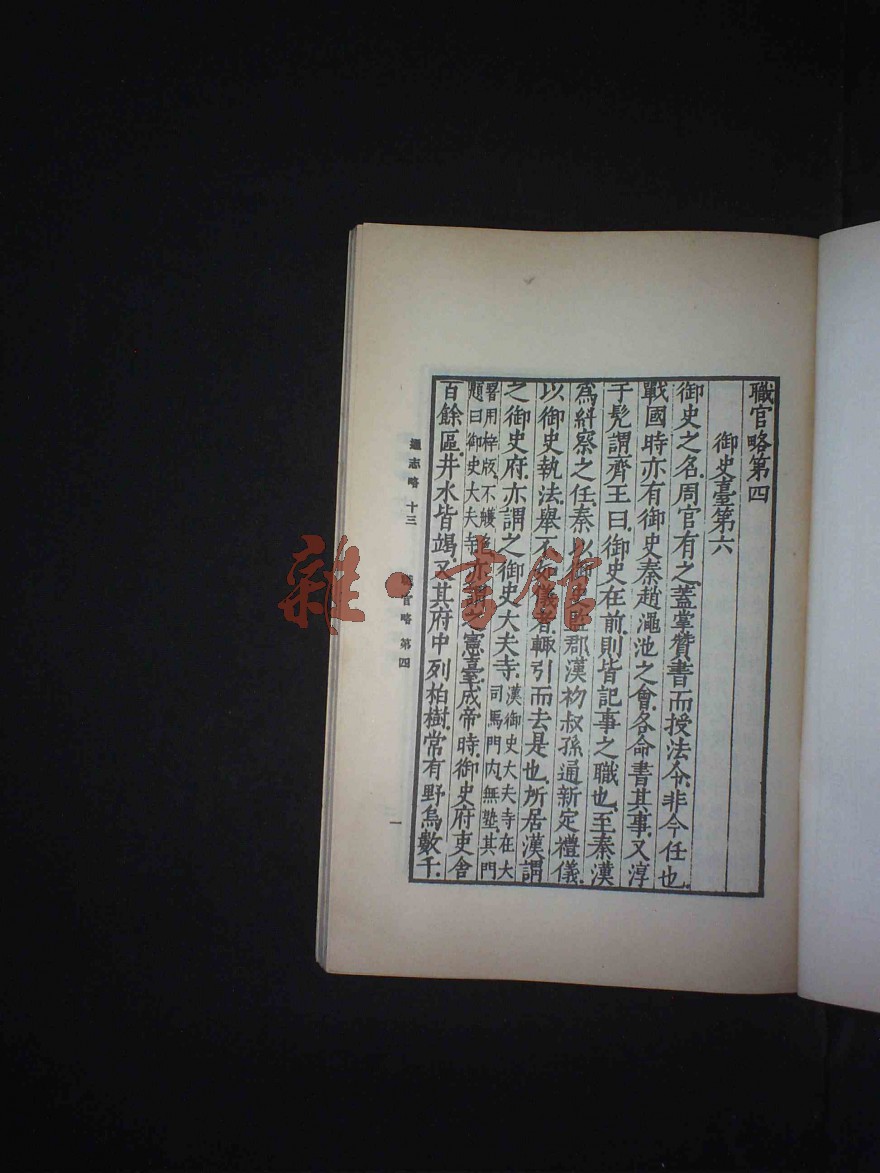 職官略第四
御史臺第六
御史之名周官有之蓋掌贊書而授法令非今任也
戰國時亦有御史秦趙澠池之會各命書其事又淳
于髡謂齊王曰御史在前則皆記事之職也至秦漢
爲糾察之任秦以御史監郡漢初叔孫通新定禮儀
以御史執法舉不如儀者輒引而去是也所居漢謂
之御史府亦謂之御史大夫寺漢御史大夫寺在大
司馬門内無塾其門
署用梓版不雘
題曰御史大夫寺亦謂之憲臺成帝時御史府吏舍
百餘區井水皆竭又其府中列柏樹常有野烏數千
通志略 十三
官略 第四
一
雜·書館